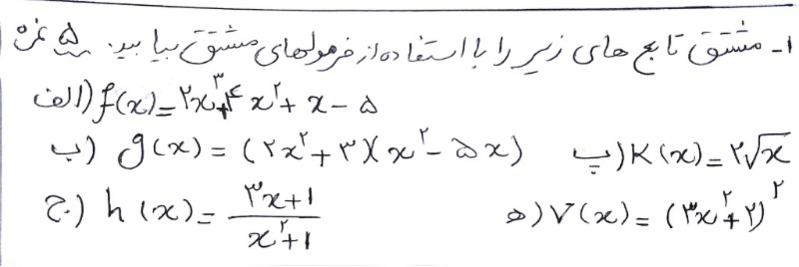 ۱- مشتق تابع های زیر را با استفاده از فرمولهای مشتق بیابید. ۵ نمره
الف) f(x) = ۲x³ + ۴x² + x − ۵
ب) g(x) = (۲x² + ۳)(x² − ۵x)    پ) K(x) = ۲√x
ج) h(x) = (۳x+۱)/(x²+۱)    ه) V(x) = (۳x² + ۲)²